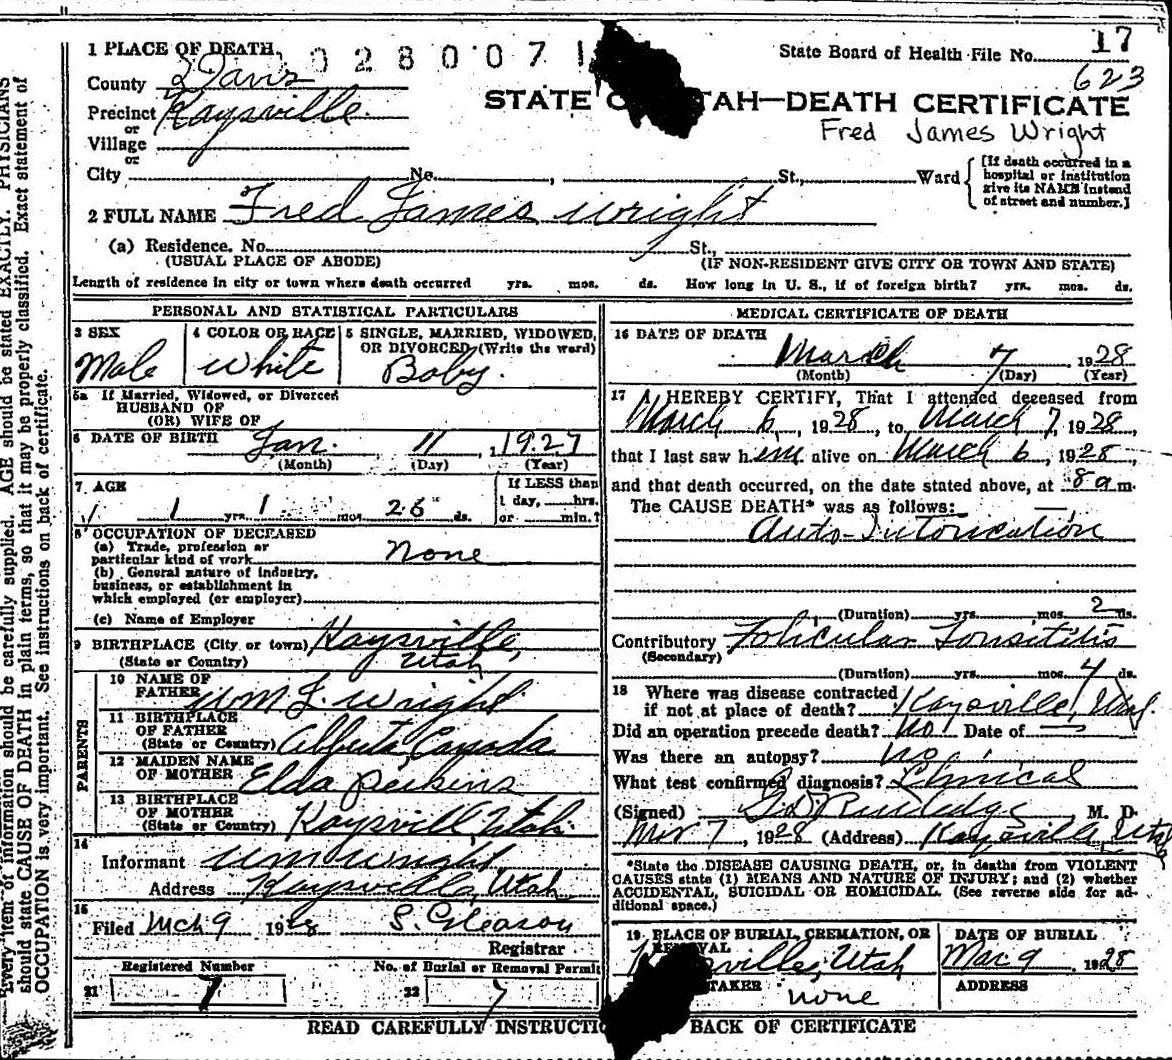 1 PLACE OF DEATH
0280071
State Board of Health File No. 17
623
County 2 Davis
Precinct Kaysville
or
Village
or
STATE O TAH—DEATH CERTIFICATE
Fred James Wright
City No. , St., Ward
[If death occurred in a
hospital or institution
give its NAME instead
of street and number.]
2 FULL NAME Fred James Wright
(a) Residence. No. St.,
(USUAL PLACE OF ABODE) (IF NON-RESIDENT GIVE CITY OR TOWN AND STATE)
Length of residence in city or town where death occurred yrs. mos. ds. How long in U. S., if of foreign birth? yrs. mos. ds.
PERSONAL AND STATISTICAL PARTICULARS
3 SEX Male
4 COLOR OR RACE White
5 SINGLE, MARRIED, WIDOWED,
OR DIVORCED (Write the word)
Baby.
5a If Married, Widowed, or Divorced
HUSBAND OF
(OR) WIFE OF
6 DATE OF BIRTH Jan. 11, 1927
(Month) (Day) (Year)
7 AGE
1 yrs. 1 mos. 26 ds.
If LESS than
1 day, hrs.
or min.?
8 OCCUPATION OF DECEASED
(a) Trade, profession or
particular kind of work none
(b) General nature of industry,
business, or establishment in
which employed (or employer)
(c) Name of Employer
9 BIRTHPLACE (City or town) Kaysville,
(State or Country) Utah
PARENTS
10 NAME OF
FATHER Wm L. Wright
11 BIRTHPLACE
OF FATHER
(State or Country) Alberta Canada
12 MAIDEN NAME
OF MOTHER Elda Perkins
13 BIRTHPLACE
OF MOTHER
(State or Country) Kaysvill Utah.
14
Informant Wm Wright
Address Kaysville, Utah
15
Filed Mch 9 1928 S. Gleason
Registrar
Registered Number
21 7
No. of Burial or Removal Permit
22 7
MEDICAL CERTIFICATE OF DEATH
16 DATE OF DEATH
March 7 1928
(Month) (Day) (Year)
17 I HEREBY CERTIFY, That I attended deceased from
March 6, 1928, to March 7, 1928,
that I last saw him alive on March 6, 1928,
and that death occurred, on the date stated above, at 8 a m.
The CAUSE DEATH* was as follows:
Auto-Intoxication
(Duration) yrs. mos. 2 ds.
Contributory Folicular Tonsitidis
(Secondary)
(Duration) yrs. mos. 4 ds.
18 Where was disease contracted
if not at place of death? Kaysville, Utah.
Did an operation precede death? no Date of —
Was there an autopsy? no
What test confirmed diagnosis? Clinical
(Signed) G. D. Rutledge M. D.
Mar 7, 1928 (Address) Kaysville, Utah
*State the DISEASE CAUSING DEATH, or, in deaths from VIOLENT
CAUSES state (1) MEANS AND NATURE OF INJURY; and (2) whether
ACCIDENTAL, SUICIDAL OR HOMICIDAL. (See reverse side for ad-
ditional space.)
19 PLACE OF BURIAL, CREMATION, OR
Kaysville, Utah
DATE OF BURIAL
Mar 9 1928
TAKER none
ADDRESS
READ CAREFULLY INSTRUCTIO BACK OF CERTIFICATE
Every item of information should be carefully supplied. AGE should be stated EXACTLY. PHYSICIANS
should state CAUSE OF DEATH in plain terms, so that it may be properly classified. Exact statement of
OCCUPATION is very important. See instructions on back of certificate.